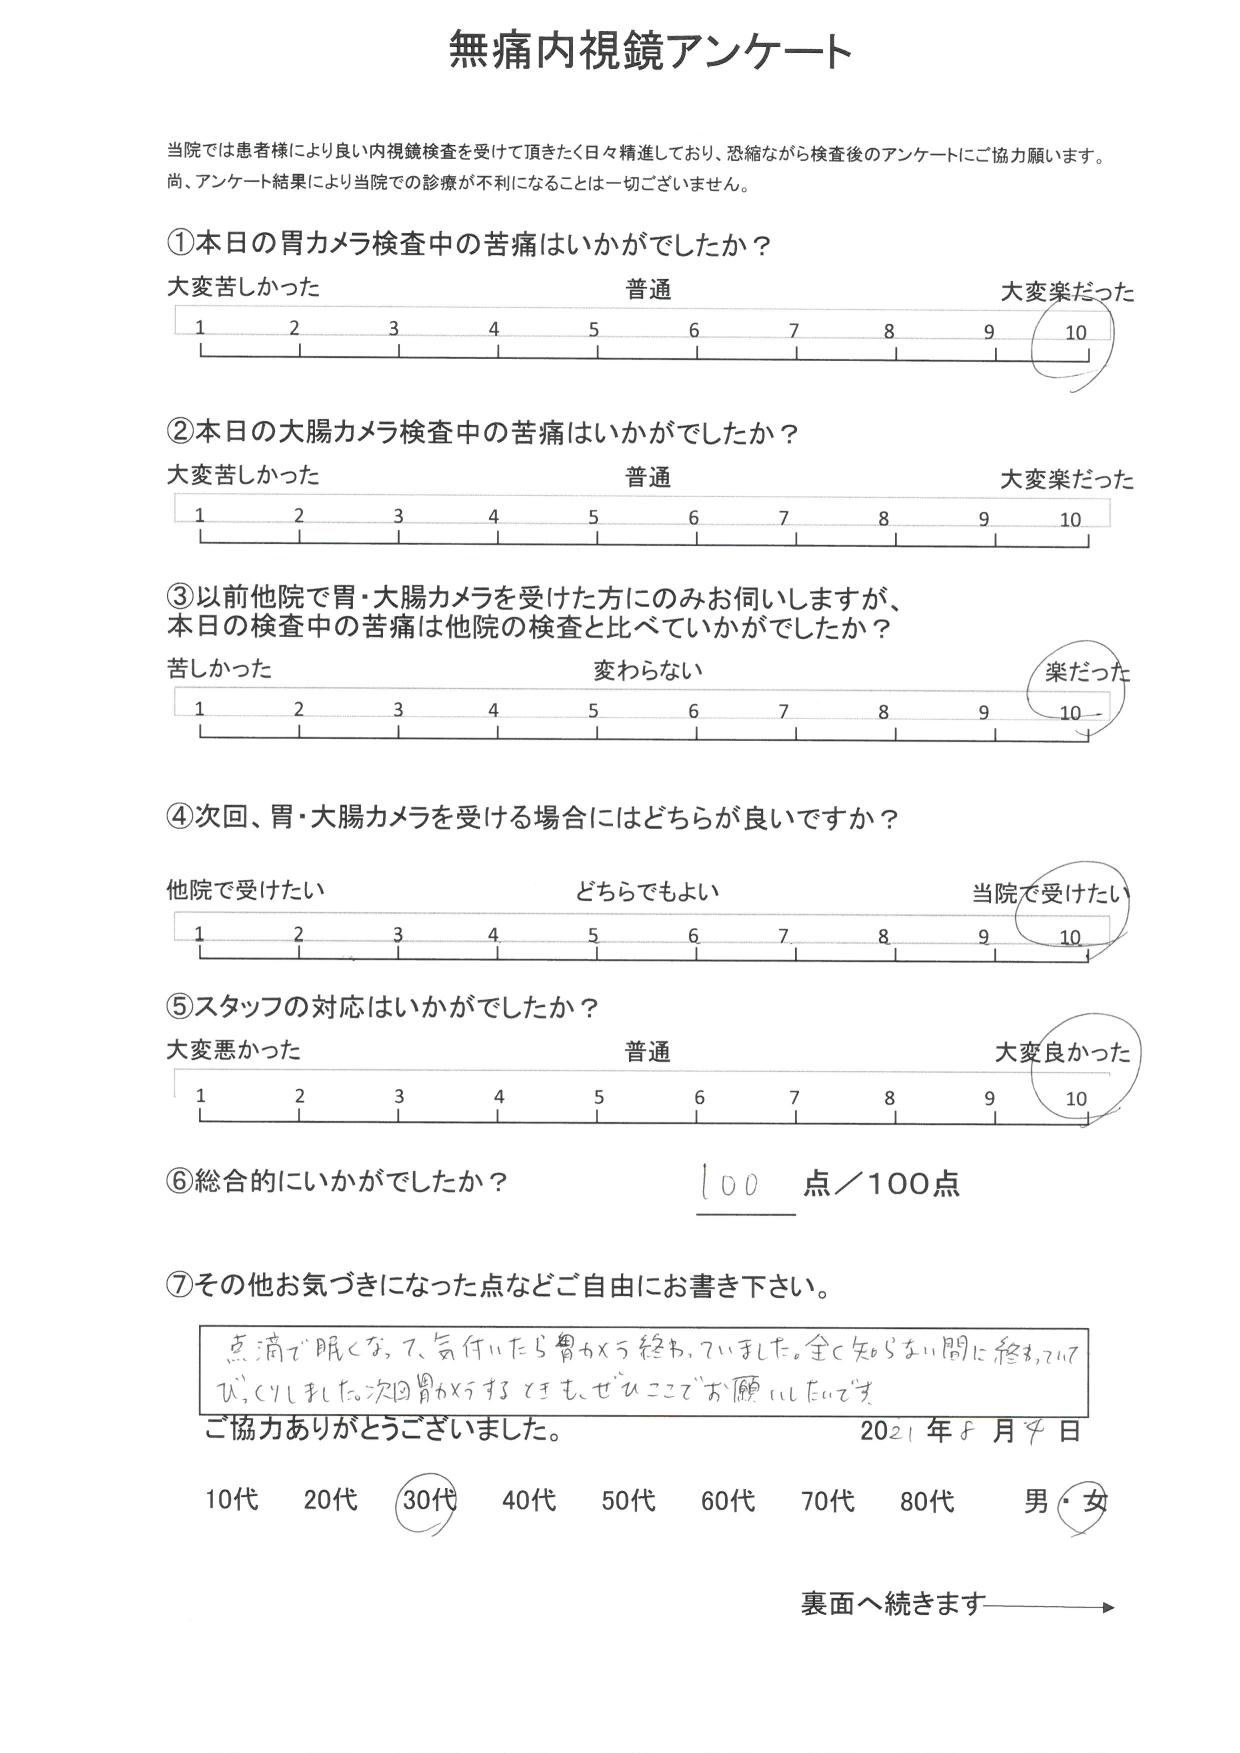 無痛内視鏡アンケート
当院では患者様により良い内視鏡検査を受けて頂きたく日々精進しており、恐縮ながら検査後のアンケートにご協力願います。
尚、アンケート結果により当院での診療が不利になることは一切ございません。
①本日の胃カメラ検査中の苦痛はいかがでしたか？
大変苦しかった 普通 大変楽だった
1 2 3 4 5 6 7 8 9 10
②本日の大腸カメラ検査中の苦痛はいかがでしたか？
大変苦しかった 普通 大変楽だった
1 2 3 4 5 6 7 8 9 10
③以前他院で胃・大腸カメラを受けた方にのみお伺いしますが、
本日の検査中の苦痛は他院の検査と比べていかがでしたか？
苦しかった 変わらない 楽だった
1 2 3 4 5 6 7 8 9 10
④次回、胃・大腸カメラを受ける場合にはどちらが良いですか？
他院で受けたい どちらでもよい 当院で受けたい
1 2 3 4 5 6 7 8 9 10
⑤スタッフの対応はいかがでしたか？
大変悪かった 普通 大変良かった
1 2 3 4 5 6 7 8 9 10
⑥総合的にいかがでしたか？ 100 点／100点
⑦その他お気づきになった点などご自由にお書き下さい。
点滴で眠くなって、気付いたら胃カメラ終わっていました。全く知らない間に終わっていて
びっくりしました。次回胃カメラするときも、ぜひここでお願いしたいです
ご協力ありがとうございました。 2021年8月4日
10代 20代 30代 40代 50代 60代 70代 80代 男・女
裏面へ続きます